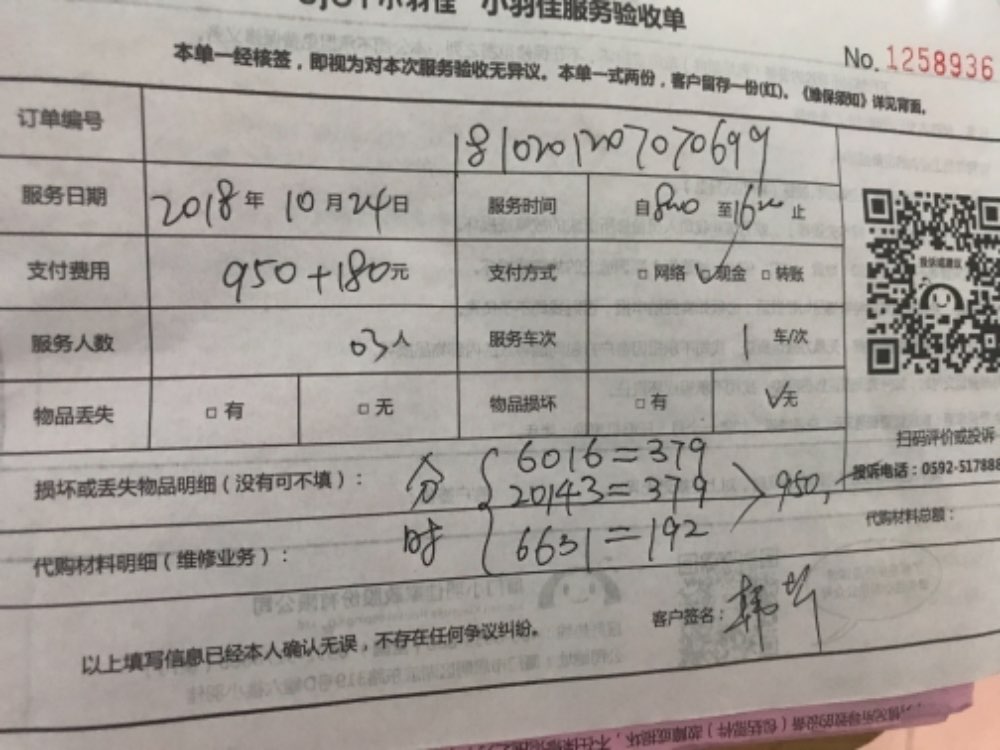 小羽佳 小羽佳服务验收单
No. 1258936
本单一经核签，即视为对本次服务验收无异议。本单一式两份，客户留存一份(红)。《维保须知》详见背面。
订单编号 181020120707069 9
服务日期 2018年 10月24日 服务时间 自800 至1600止
支付费用 950+180元 支付方式 □ 网络 ☑现金 □ 转账
服务人数 03人 服务车次 1 车/次
物品丢失 □ 有 □ 无 物品损坏 □ 有 √无
扫码评价或投诉
投诉电话：0592-517888
损坏或丢失物品明细（没有可不填）：
6016=379
20143=379
6631=192
950
代购材料总额：
代购材料明细（维修业务）：
客户签名：
以上填写信息已经本人确认无误，不存在任何争议纠纷。